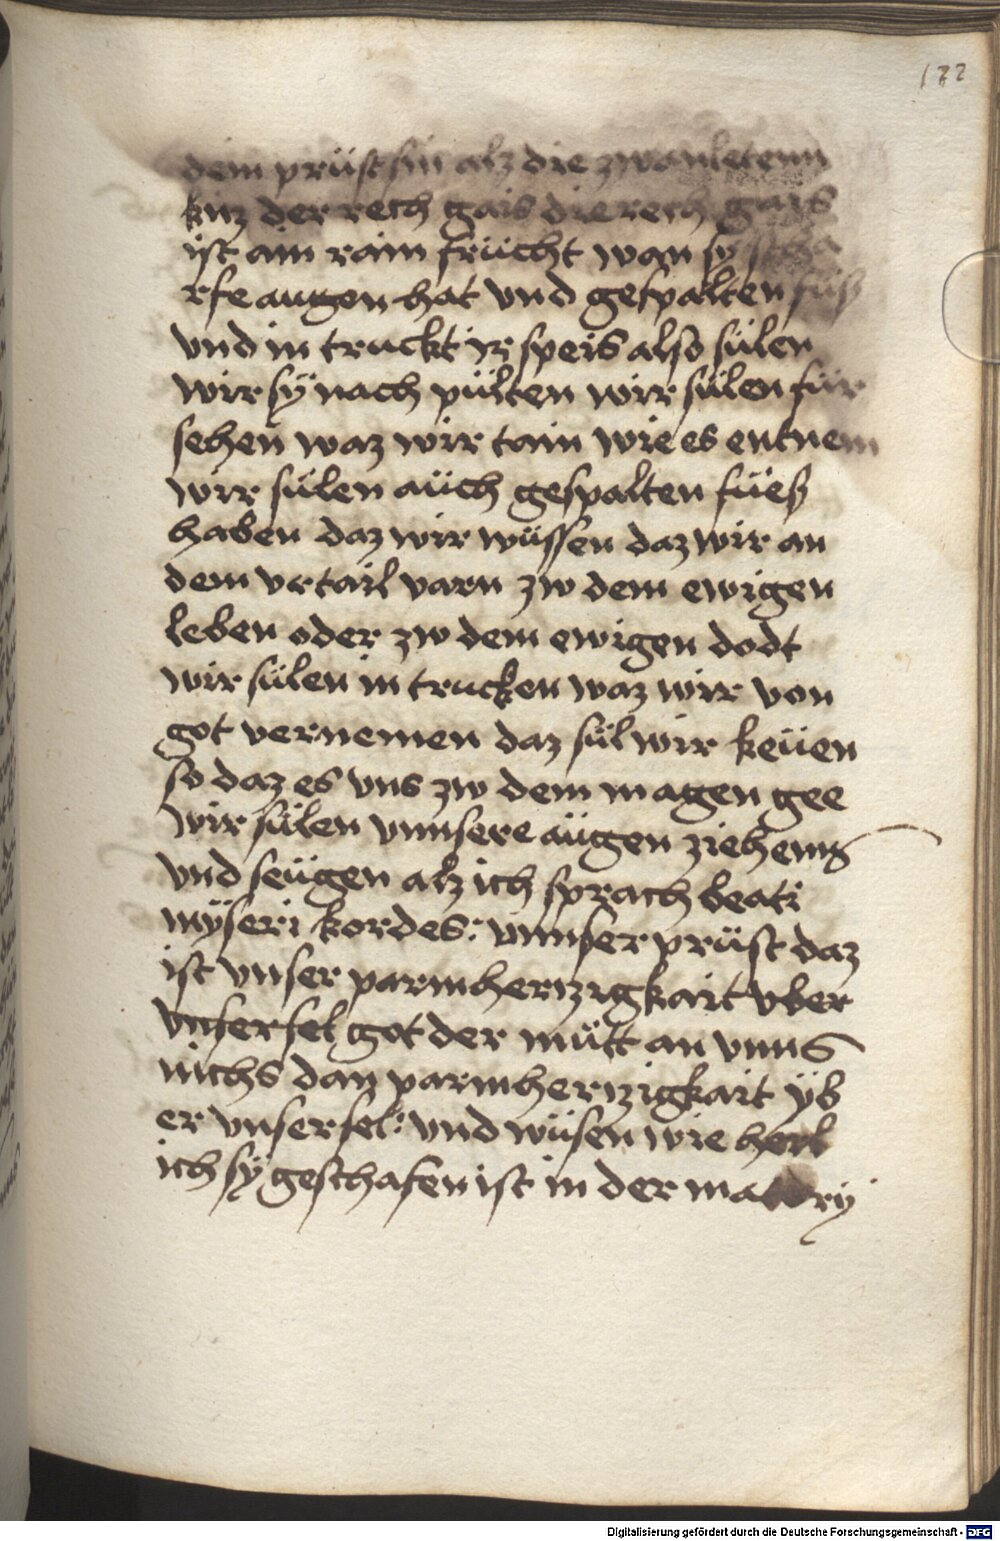 122
dein prüst sin alz die zwai
kitz der rech gais die rech gais
ist ain rain frücht wan sy
rfe augen hat vnd gespalten füs
vnd in truckt ir speis also sülen
wir sÿ nach pülten wir sülen für
sehen waz wir tain wie es entnem
wir sülen aüch gespalten füeß
haben daz wir wüssen daz wir an
dem vrtail varn zw dem ewigen
leben oder zw dem ewigen dodt
wir sülen in trucken waz wir von
got vernemen daz sül wir keüen
so daz es vns zw dem magen gee
wir sülen vnnsere aügen ziehenn
vnd seügen alz ich sprach beati
mÿseri kordes: vnnser prüst daz
ist vnser parmherzigkait vber
vnser sel got der mütt an vnns
nichs dan parmherzigkait ÿb
er vnser sel: vnd wüsen wie herl
ich sÿ geschafen ist in der
Digitalisierung gefördert durch die Deutsche Forschungsgemeinschaft - DFG